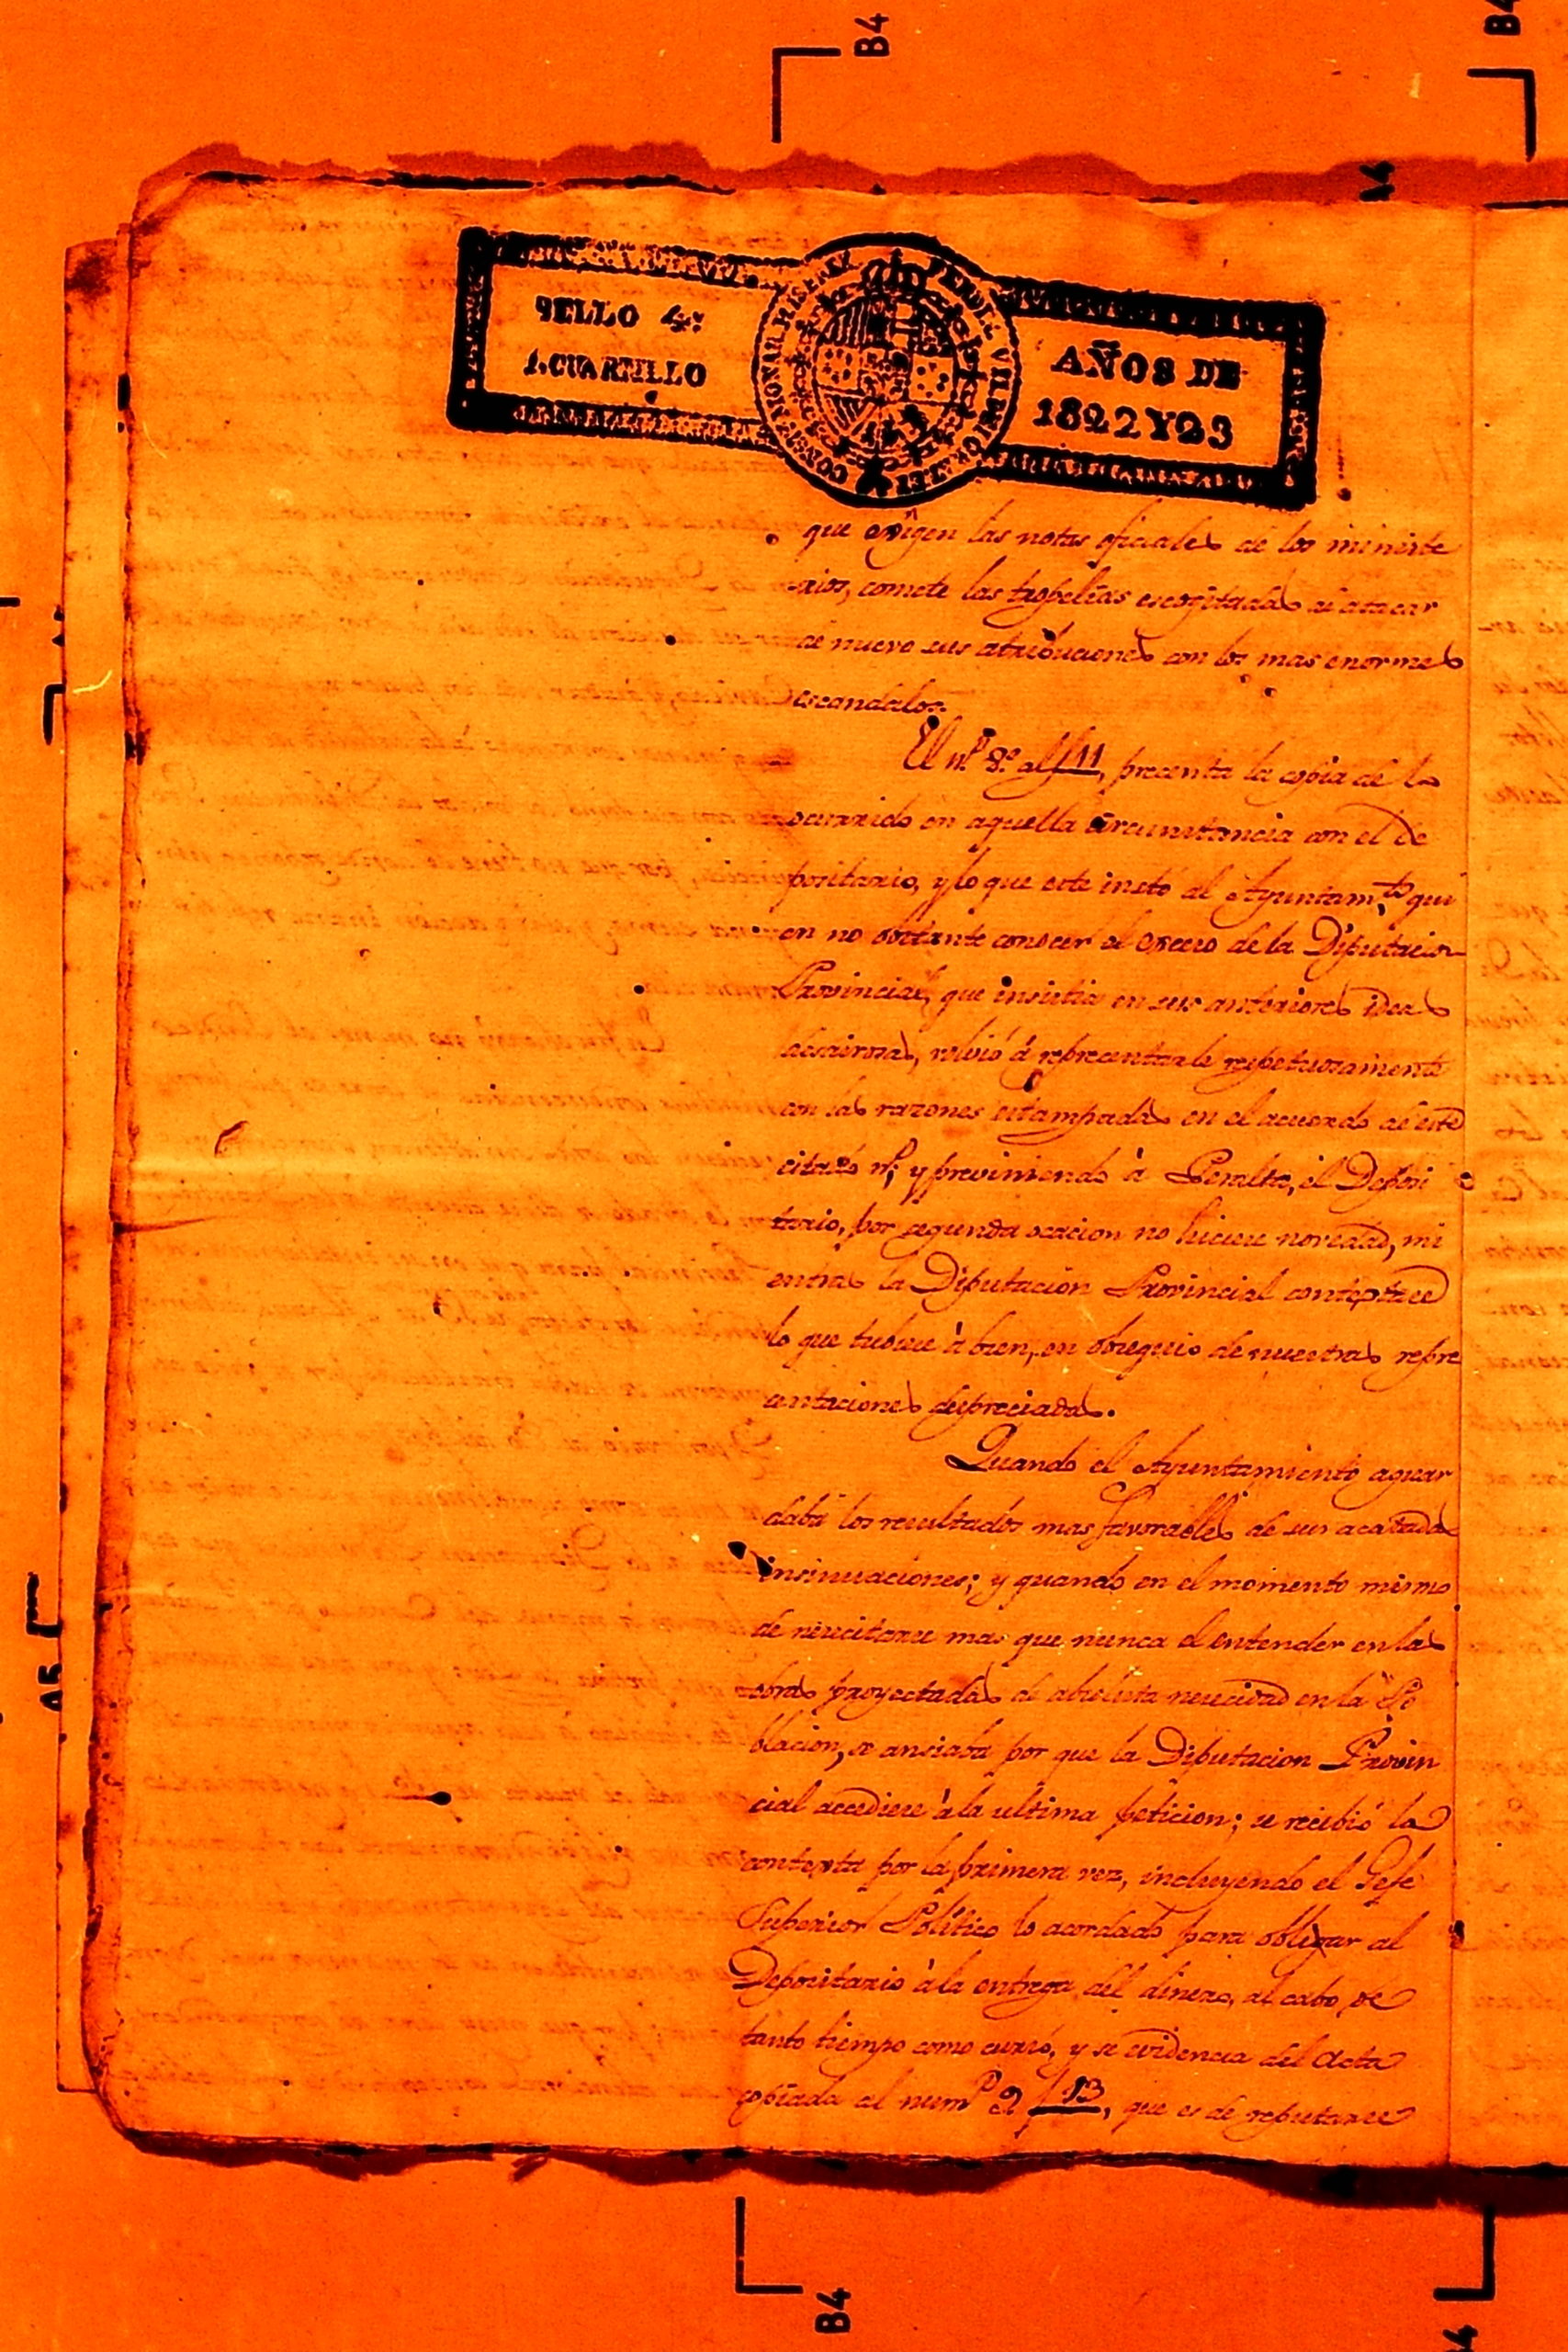 B4
B4
A4
SELLO 4º
1.CUARTILLO
AÑOS DE
1822 Y 23
que exigen las notas oficiales de los ministe
rios, comete las tropelias escogitadas al atacar
de nuevo sus atribuciones con los mas enormes
escandalos.
El nº 8º al f 11, precenta la copia de lo
ocurrido en aquella circunstancia con el De
positario, y lo que este instó al Ayuntamto qui
en no obstante conocer el exceso de la Diputacion
Provincial, que insistia en sus anteriores ideas
desairosas, volvió á reprecentarle respetuosamente
con las razones estampadas en el acuerdo de este
citado nº; y previniendo á Peralta, el Deposi
tario, por segunda ocacion no hiciese novedad, mi
entras la Diputacion Provincial contextace
lo que tubiese á bien, en obsequio de nuestras repre
centaciones despreciadas.
Quando el Ayuntamiento aguar
daba los resultados mas favorables de sus acatadas
insinuaciones; y quando en el momento mismo
de necicitarse mas que nunca el entender en las
obras proyectadas de absoluta necicidad en la Po
blacion, se ansiaba por que la Diputacion Provin
cial accediese á la ultima peticion; se recibió la
contexta por la primera vez, incluyendo el Gefe
Superior Político lo acordado para obligar al
Depositario á la entrega del dinero, al cabo de
tanto tiempo como cursó, y se evidencia del Acta
copiada al numº 9 f 13, que es de reputarse
A5
B4